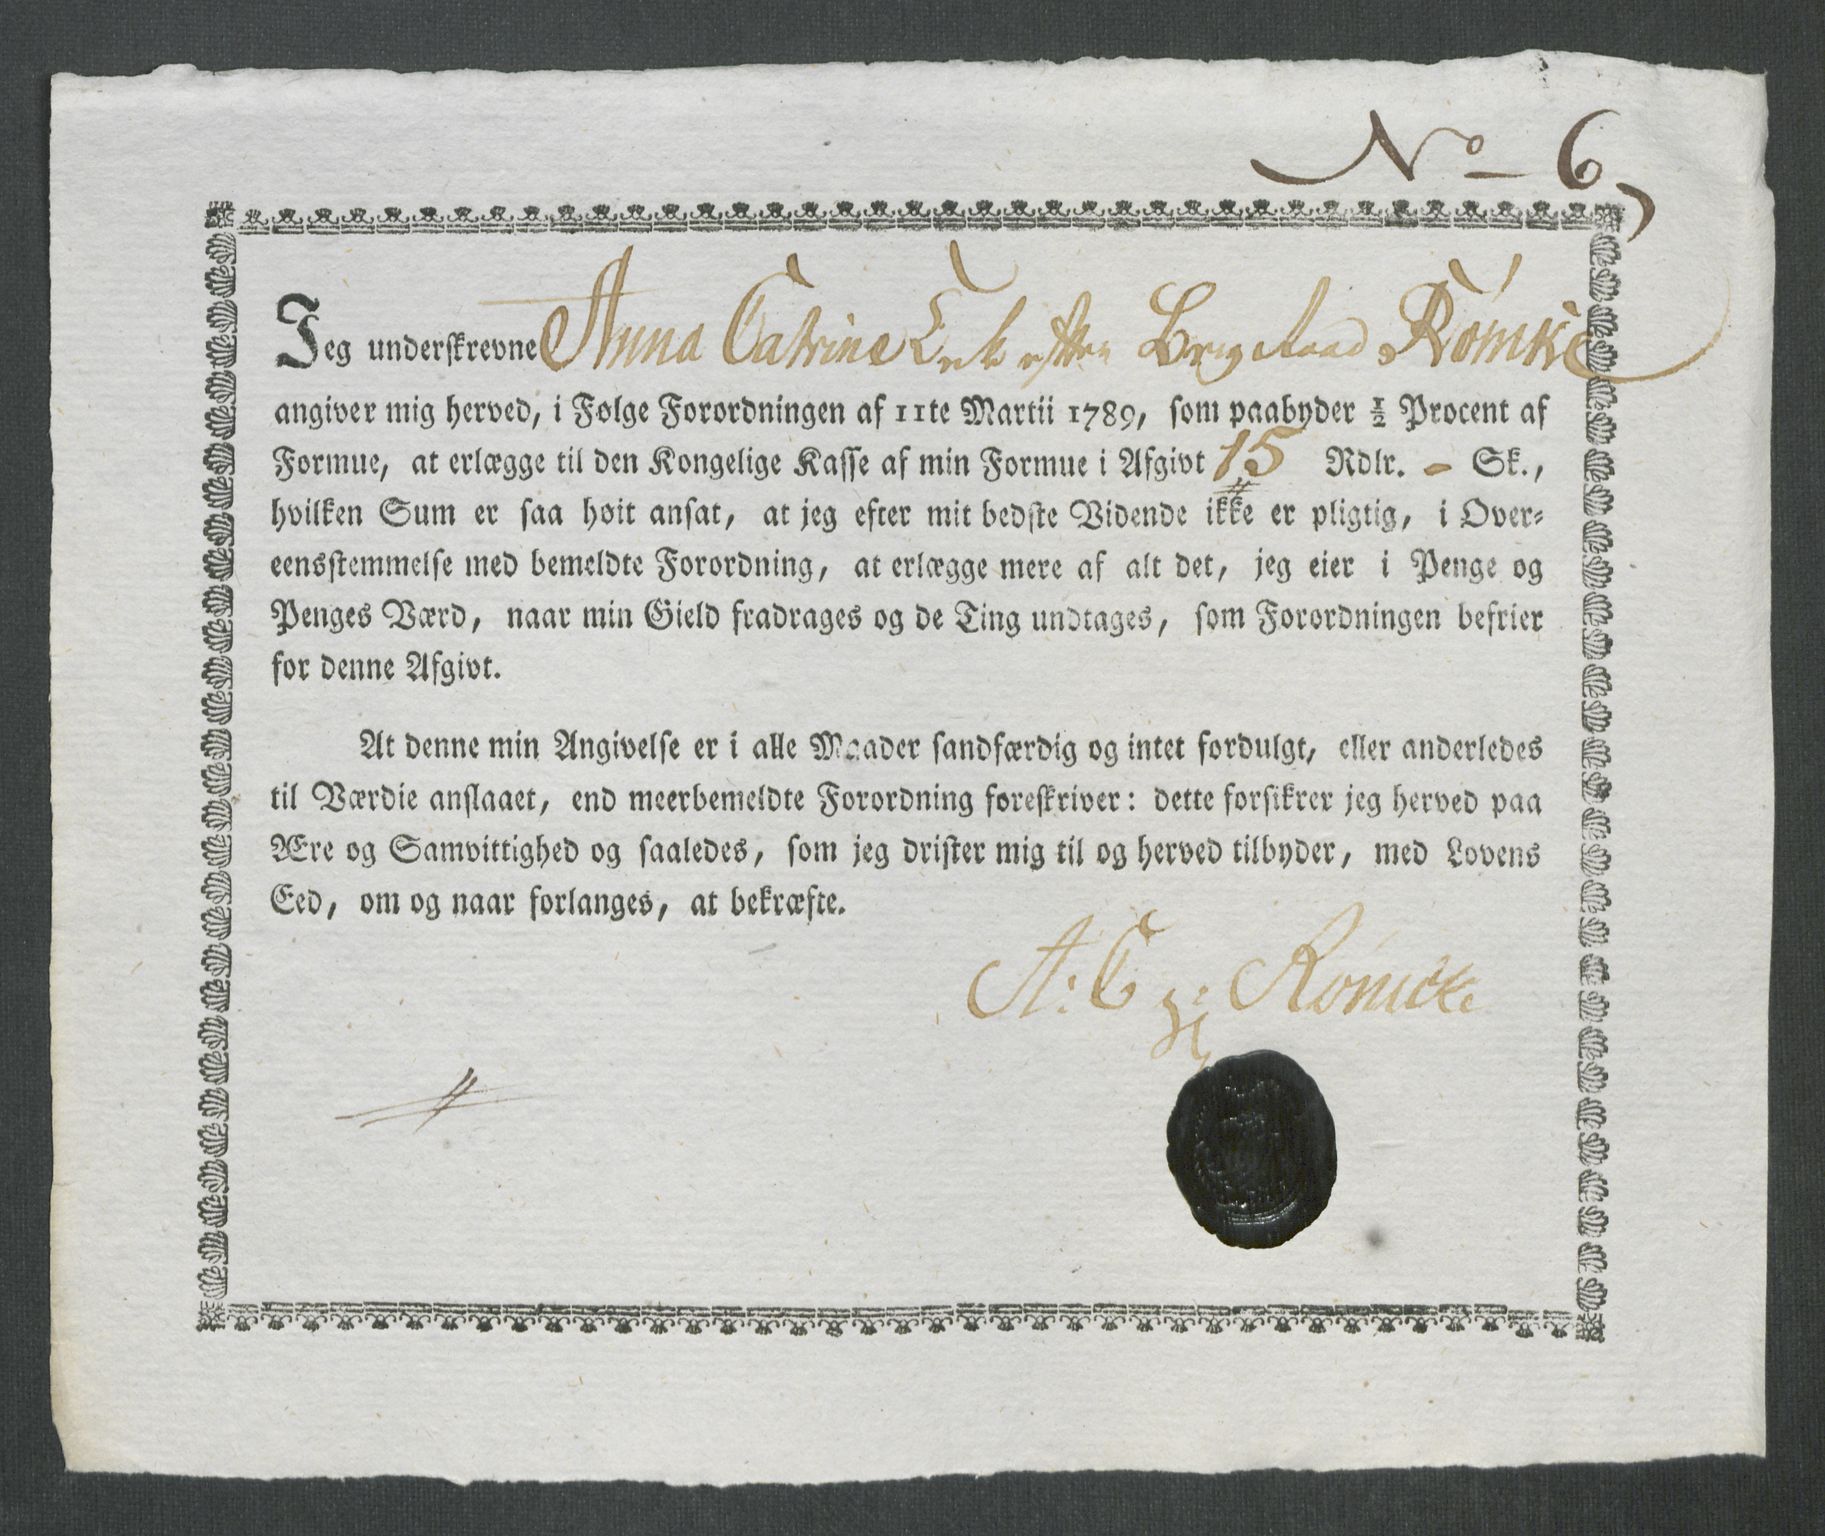 No 6,
Jeg underskrevne Anna Catrine Enke efter Bergraad Römke
angiver mig herved, i Følge Forordningen af 11te Martii 1789, som paabyder ½ Procent af
Formue, at erlægge til den Kongelige Kasse af min Formue i Afgivt 15 Rdlr. - Sk.,
hvilken Sum er saa høit ansat, at jeg efter mit bedste Vidende ikke er pligtig, i Over-
eensstemmelse med bemeldte Forordning, at erlægge mere af alt det, jeg eier i Penge og
Penges Værd, naar min Gield fradrages og de Ting undtages, som Forordningen befrier
for denne Afgivt.
At denne min Angivelse er i alle Maader sandfærdig og intet fordulgt, eller anderledes
til Værdie anslaaet, end meerbemeldte Forordning foreskriver: dette forsikrer jeg herved paa
Ære og Samvittighed og saaledes, som jeg drister mig til og herved tilbyder, med Lovens
Eed, om og naar forlanges, at bekræfte.
A: C Römcke